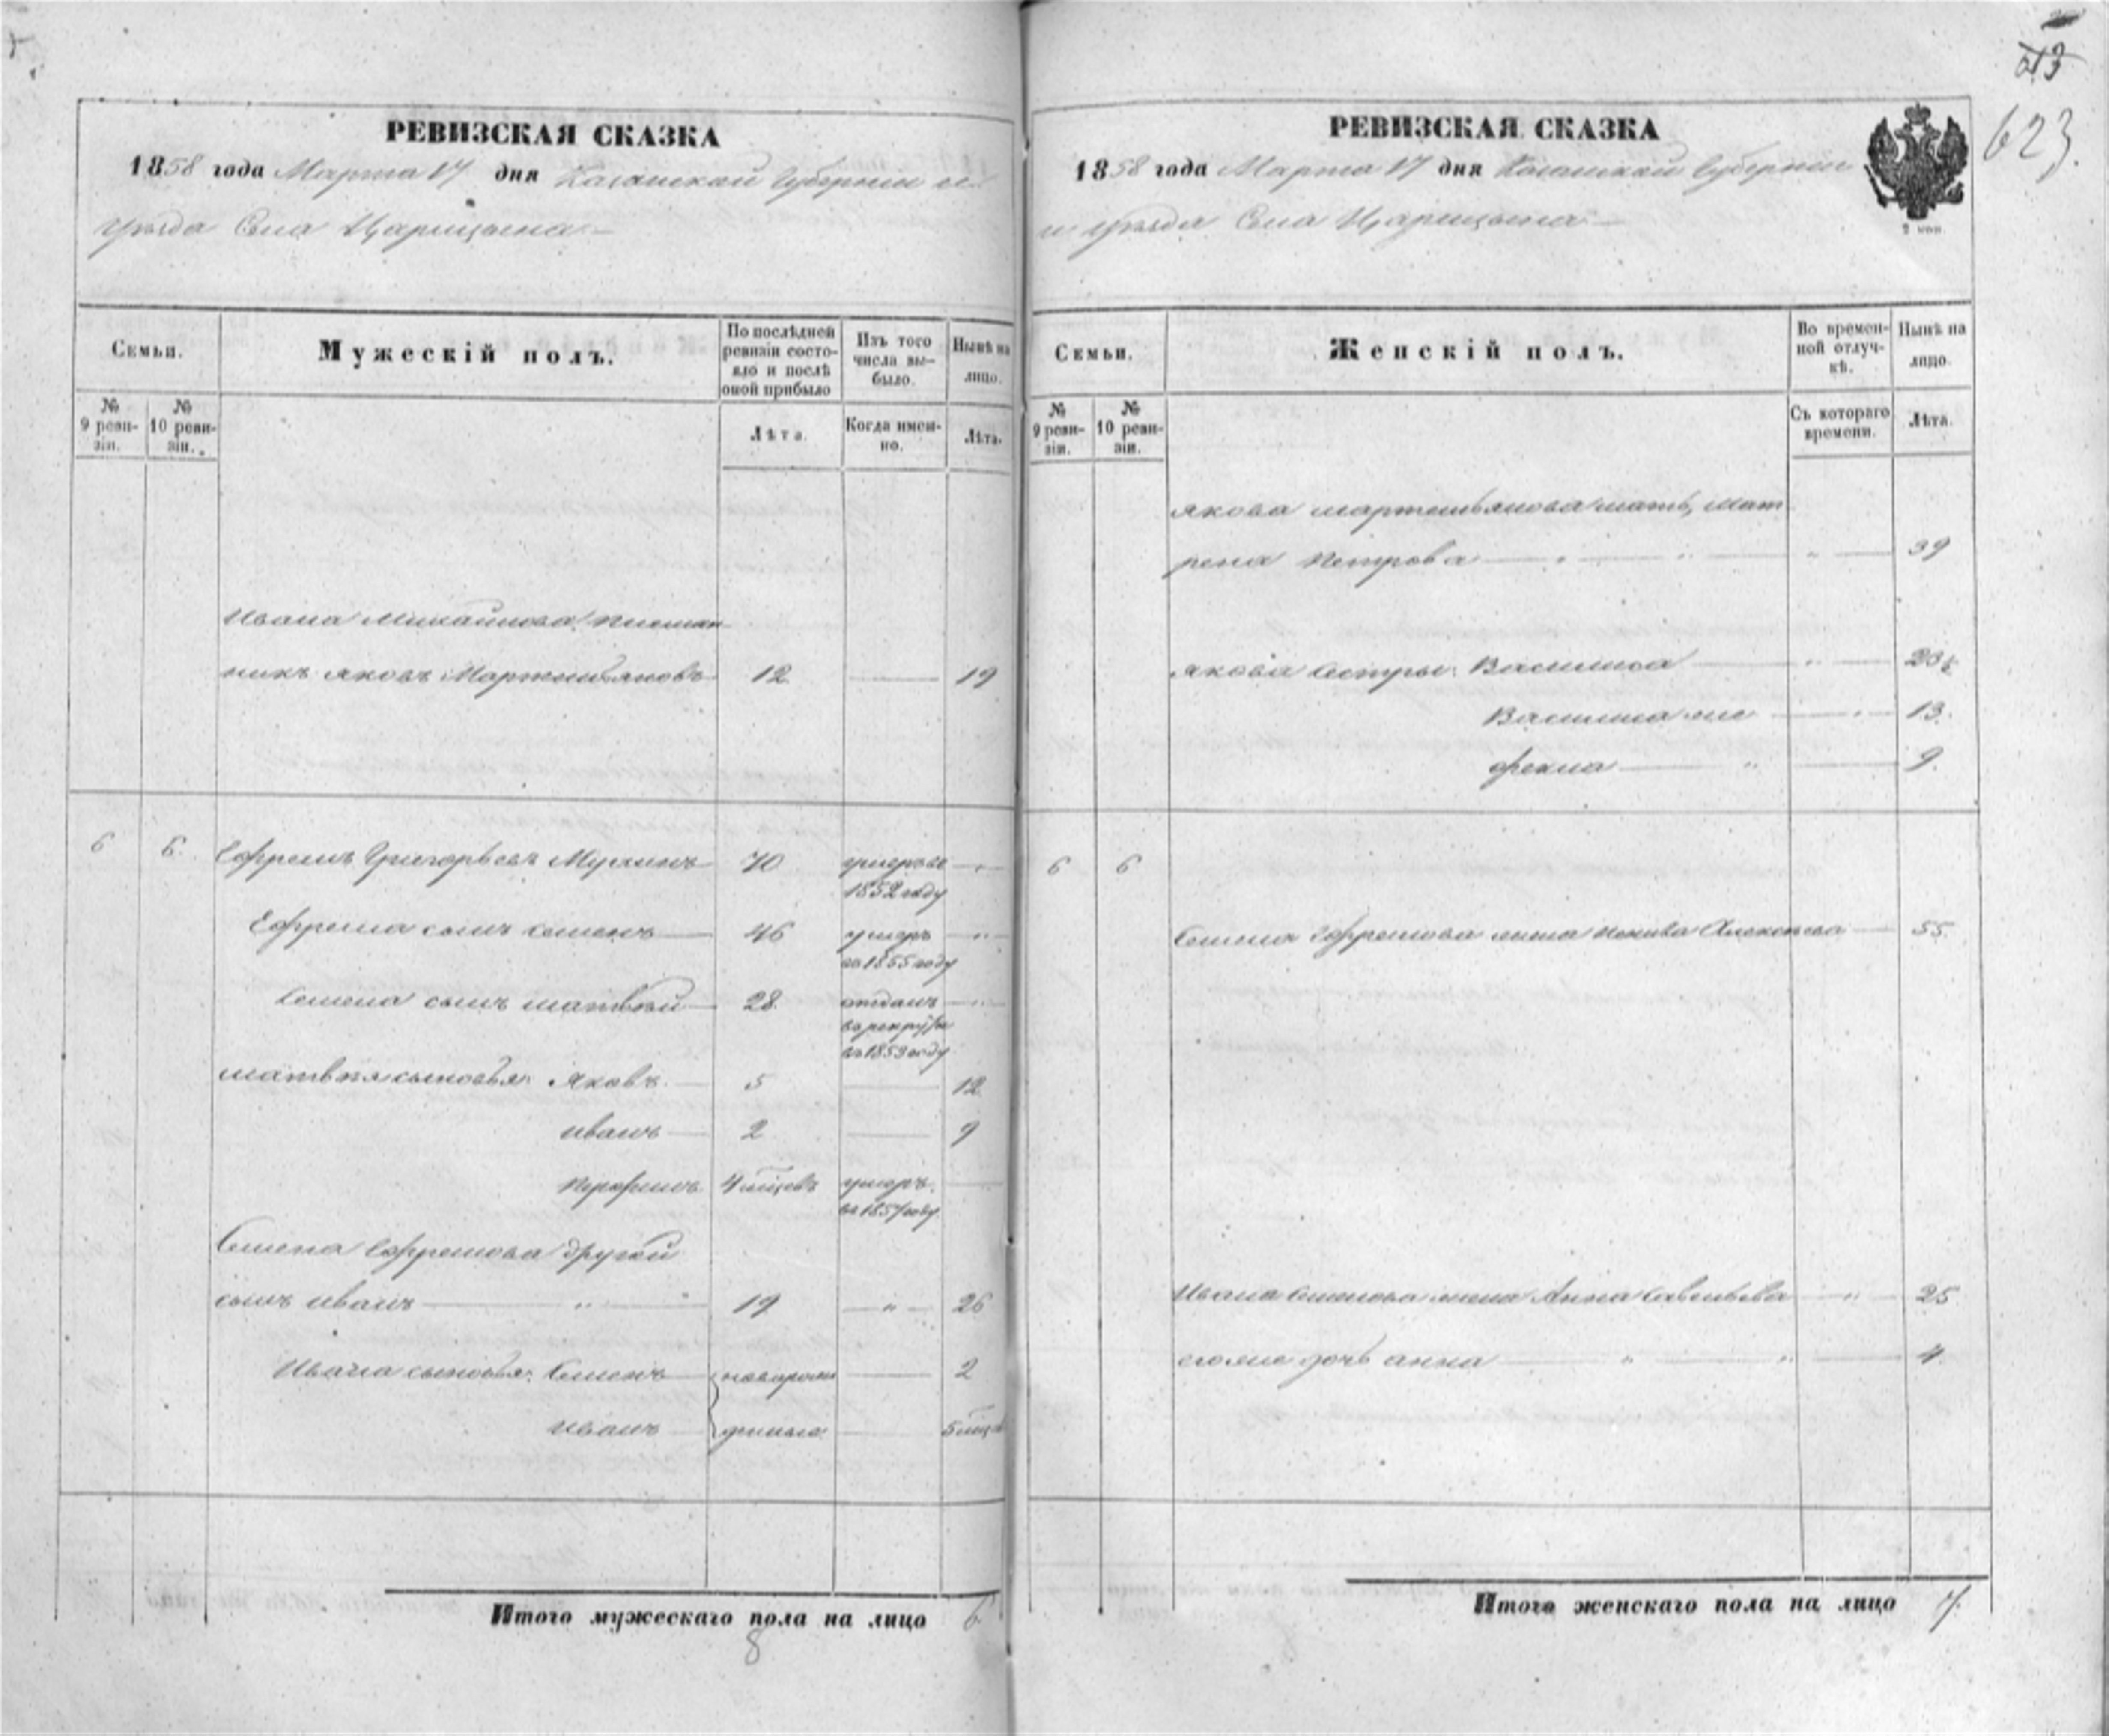 РЕВИЗСКАЯ СКАЗКА
1858 года Марта 17 дня Казанской Губернии и
уѣзда Села Царицына
Семьи.
Мужескій полъ.
По послѣдней ревизіи состояло и послѣ оной прибыло
Изъ того числа выбыло.
Нынѣ на лицо.
№ 9 ревизіи.
№ 10 ревизіи.
Лѣта.
Когда именно.
Лѣта.
Ивана Михайлова племян
никъ Яковъ Мартемьяновъ 12 19
6 6. Ефремъ Григорьевъ 70 умеръ въ
1852 году
Ефрема сынъ Семенъ 46 умеръ
въ 1855 году
Семена сынъ Матвѣй 28. отданъ
въ рекруты
въ 1853 году
Матвѣя сыновья: Яковъ 5 12
Иванъ 2 9
4 мѣсцевъ умеръ.
въ 1857 году.
Семена Ефремова другой
сынъ Иванъ " 19 " 26
Ивана сыновья: Семенъ новорож 2
Иванъ денныя 5 мѣсц
Итого мужескаго пола на лицо 6
8
513
623.
РЕВИЗСКАЯ СКАЗКА
1858 года Марта 17 дня Казанской Губернии
и уѣзда Села Царицына
Семьи.
Женскій полъ.
Во временной отлучкѣ.
Нынѣ на лицо.
№ 9 ревизіи.
№ 10 ревизіи.
Съ котораго времени.
Лѣта.
Якова Мартемьянова мать, Мат
рена Петрова " " " 39
Якова сестры: Василиса "
Василиса же " 13.
Фекла " 9.
6 6
Семена Ефремова жена Алексѣева 55.
Ивана Семенова жена Анна Савельева " 25
его же дочь Анна " " 4.
Итого женскаго пола на лицо 7.